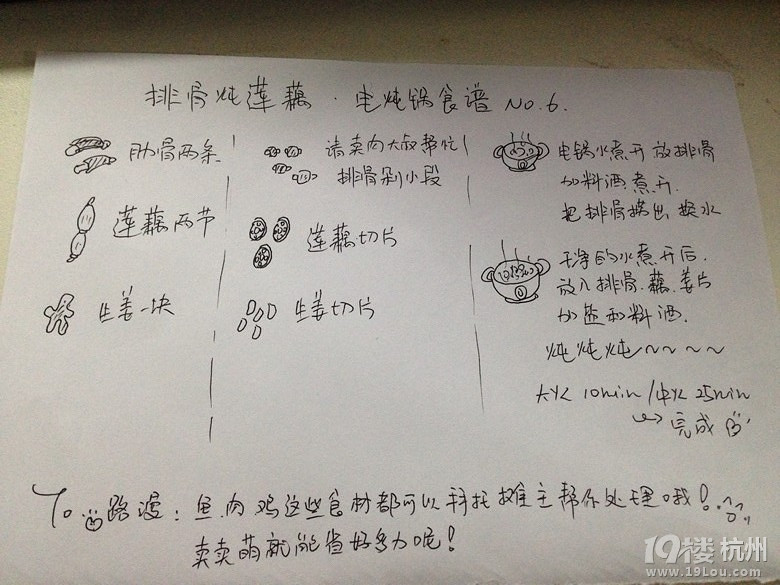 排骨炖莲藕·电炖锅食谱 No.6.
肋骨两条
莲藕两节
生姜一块
请卖肉大叔帮忙
排骨剁小段
莲藕切片
生姜切片
电锅水煮开 放排骨
加料酒煮开.
把排骨捞出、换水
干净的水煮开后.
放入排骨.藕.姜片
加盐和料酒.
炖炖炖~~~~
大火10min/中火25min
完成
To 路漫:鱼.肉 鸡这些食材都可以拜托摊主帮你处理哦!
卖卖萌就能省好多力呢!
19楼 杭州
www.19Lou.com